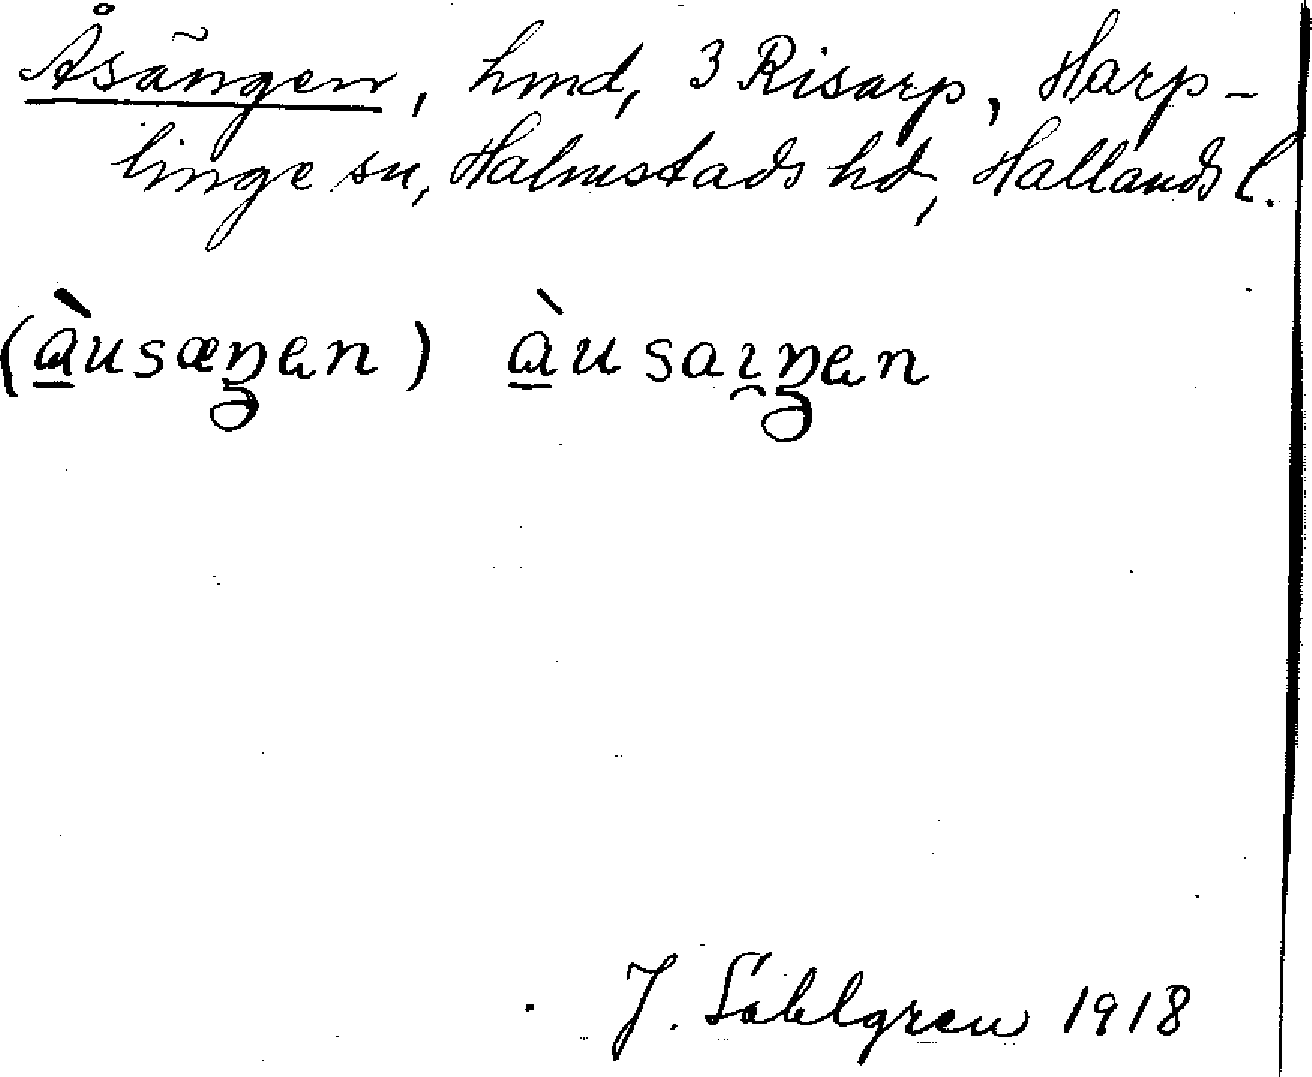 Åsängen, hmd, 3 Risarp, Harp-
linge sn, Halmstads hd, Hallands l.
(àusæŋen) àusaı̯ŋen
J. Sahlgren 1918